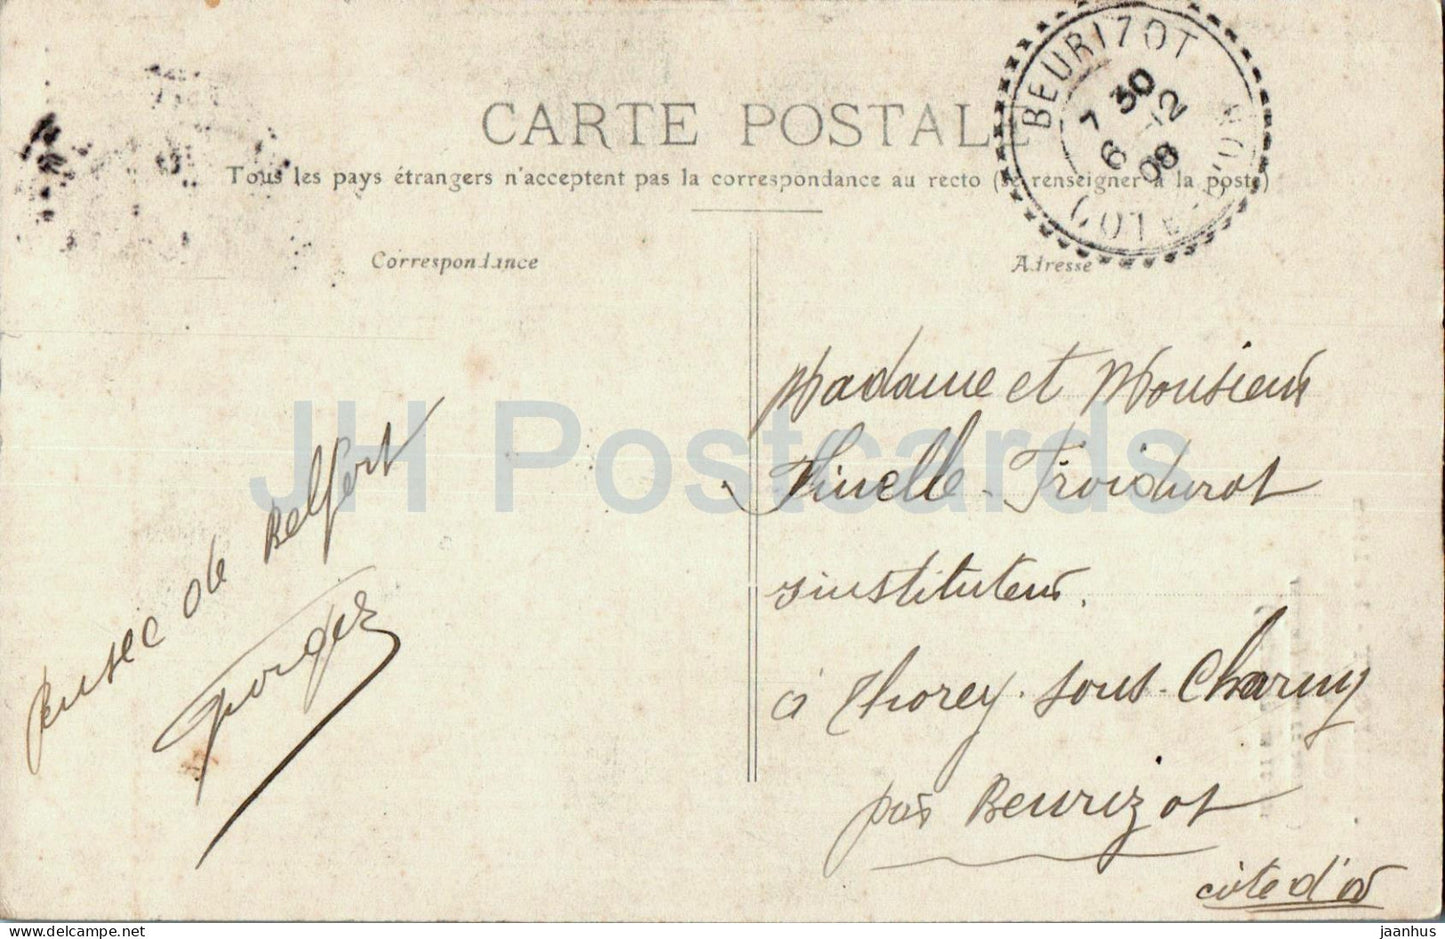 CARTE POSTALE
Tous les pays étrangers n'acceptent pas la correspondance au recto (se renseigner à la poste)
BEURIZOT
7 30
6 -12
08
COTE-D'OR
Correspondance
Adresse
Madame et Monsieur
Finelle - Froidurot
instituteur.
à Thorey-sous-Charny
par Beurizot
côte d'or
pensée de Belfort
Georges
JH Postcards
delcampe.net
jaanhus